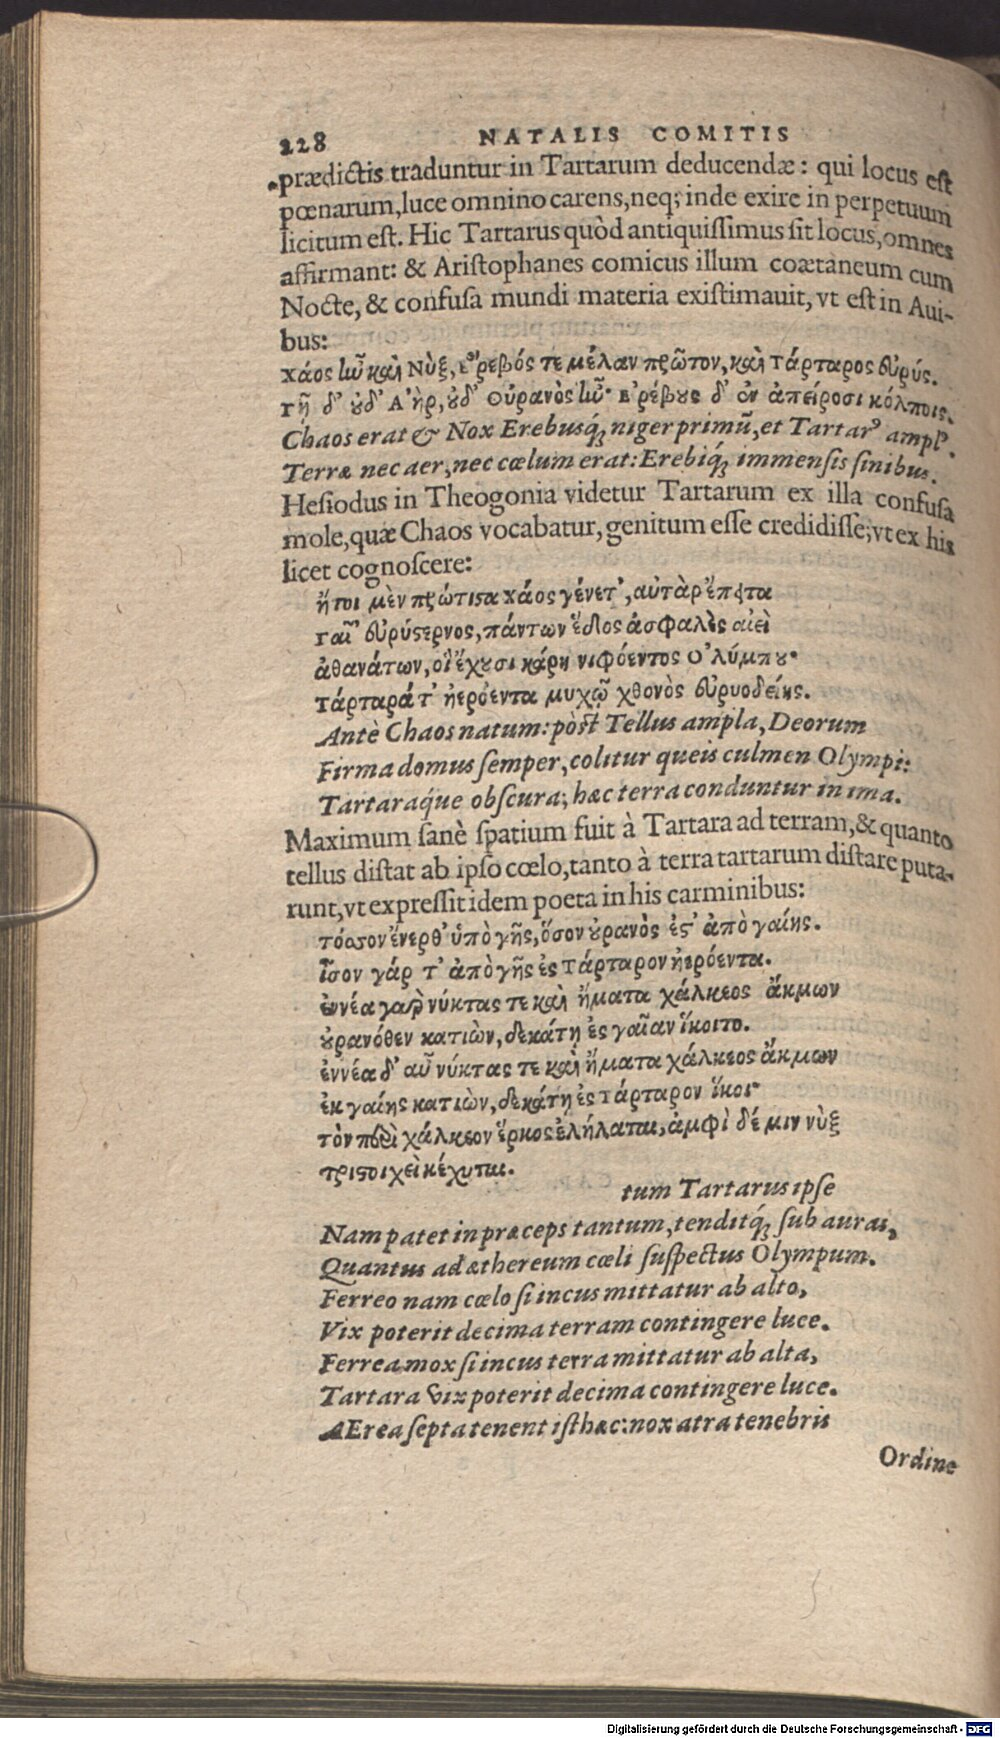 228 NATALIS COMITIS
prædictis traduntur in Tartarum deducendæ: qui locus eſt
pœnarum, luce omnino carens, neq; inde exire in perpetuum
licitum eſt. Hic Tartarus quòd antiquiſſimus ſit locus, omnes
affirmant: & Ariſtophanes comicus illum coætaneum cum
Nocte, & confuſa mundi materia exiſtimauit, vt eſt in Aui-
bus:
χάος ἰῶ καὶ Νὺξ, ἔρεβός τε μέλαν πρῶτον, καὶ Τάρταρος εὐρύς.
γῆ δ' οὐδ' Ἀὴρ, οὐδ' Οὐρανὸς ἰῶ· Ἐρέβους δ' ἐν ἀπείροσι κόλποις.
Chaos erat & Nox Erebusq́; niger primũ, et Tartarꝰ amplꝰ.
Terra nec aer, nec cœlum erat: Erebiq́; immenſis ſinibus.
Heſiodus in Theogonia videtur Tartarum ex illa confuſa
mole, quæ Chaos vocabatur, genitum eſſe credidiſſe, vt ex his
licet cognoſcere:
ἤτοι μὲν πρώτιϛα χάος γένετ', αὐτὰρ ἔπειτα
γαῖ' εὐρύϛερνος, πάντων ἕδος ἀσφαλὲς αἰεὶ
ἀθανάτων, οἳ ἔχουσι κάρη νιφόεντος Ὀλύμπου·
τάρταρά τ' ἠερόεντα μυχῷ χθονὸς εὐρυοδείης.
Antè Chaos natum: pòſt Tellus ampla, Deorum
Firma domus ſemper, colitur queis culmen Olympi:
Tartaraq́ue obſcura; hæc terra conduntur in ima.
Maximum ſanè ſpatium fuit à Tartara ad terram, & quanto
tellus diſtat ab ipſo cœlo, tanto à terra tartarum diſtare puta-
runt, vt expreſſit idem poeta in his carminibus:
τόσσον ἔνερθ' ὑπὸ γῆς, ὅσον οὐρανὸς ἐϛ' ἀπὸ γαίης.
ἶσον γάρ τ' ἀπὸ γῆς ἐς τάρταρον ἠερόεντα.
ἐννέα γὰρ νύκτας τε καὶ ἤματα χάλκεος ἄκμων
οὐρανόθεν κατιὼν, δεκάτῃ ἐς γαῖαν ἵκοιτο.
ἐννέα δ' αὖ νύκτας τε καὶ ἤματα χάλκεος ἄκμων
ἐκ γαίης κατιὼν, δεκάτῃ ἐς τάρταρον ἵκοι
τὸν περὶ χάλκεον ἕρκος ἐλήλαται, ἀμφὶ δέ μιν νὺξ
τριϛοιχεὶ κέχυται.
tum Tartarus ipſe
Nam patet in præceps tantum, tenditq́; ſub auras,
Quantus ad æthereum cœli ſuſpectus Olympum.
Ferreo nam cœlo ſi incus mittatur ab alto,
Vix poterit decima terram contingere luce.
Ferrea mox ſi incus terra mittatur ab alta,
Tartara vix poterit decima contingere luce.
AErea ſepta tenent iſthæc: nox atra tenebris
Ordine
Digitalisierung gefördert durch die Deutsche Forschungsgemeinschaft - DFG